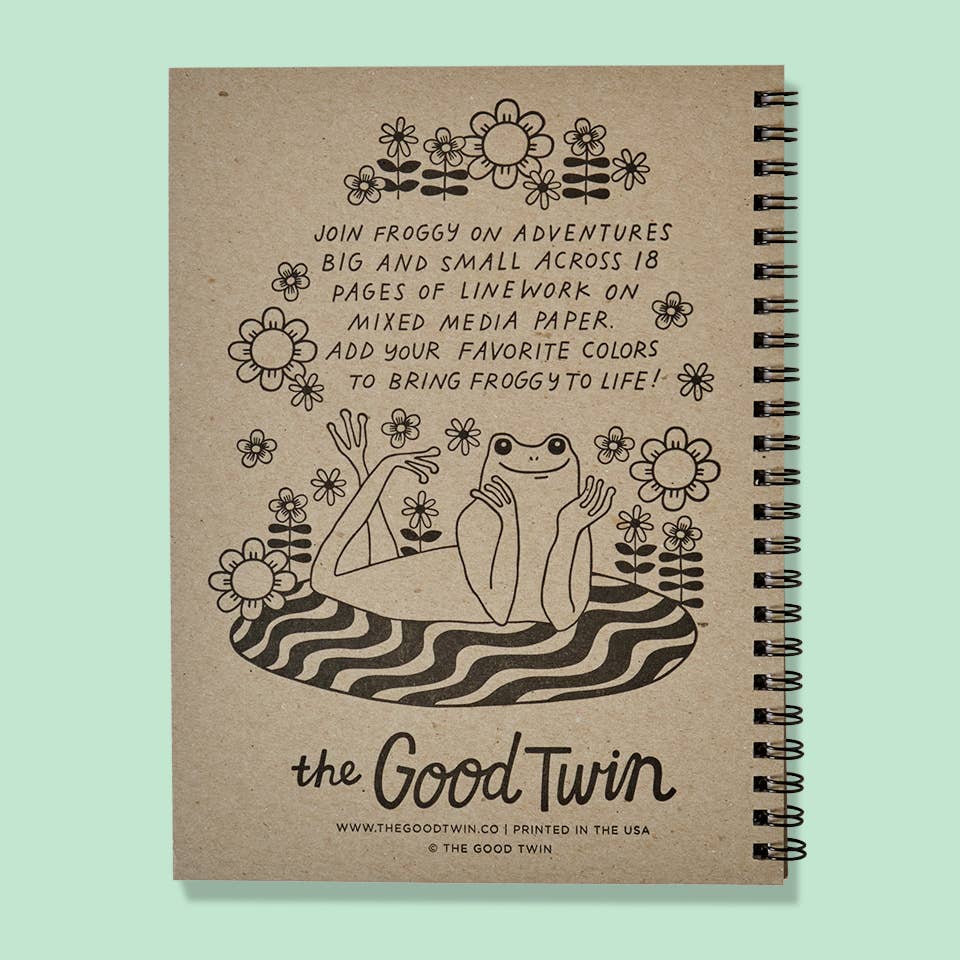 JOIN FROGGY ON ADVENTURES
BIG AND SMALL ACROSS 18
PAGES OF LINEWORK ON
MIXED MEDIA PAPER.
ADD YOUR FAVORITE COLORS
TO BRING FROGGY TO LIFE!
the Good Twin
WWW.THEGOODTWIN.CO | PRINTED IN THE USA
© THE GOOD TWIN